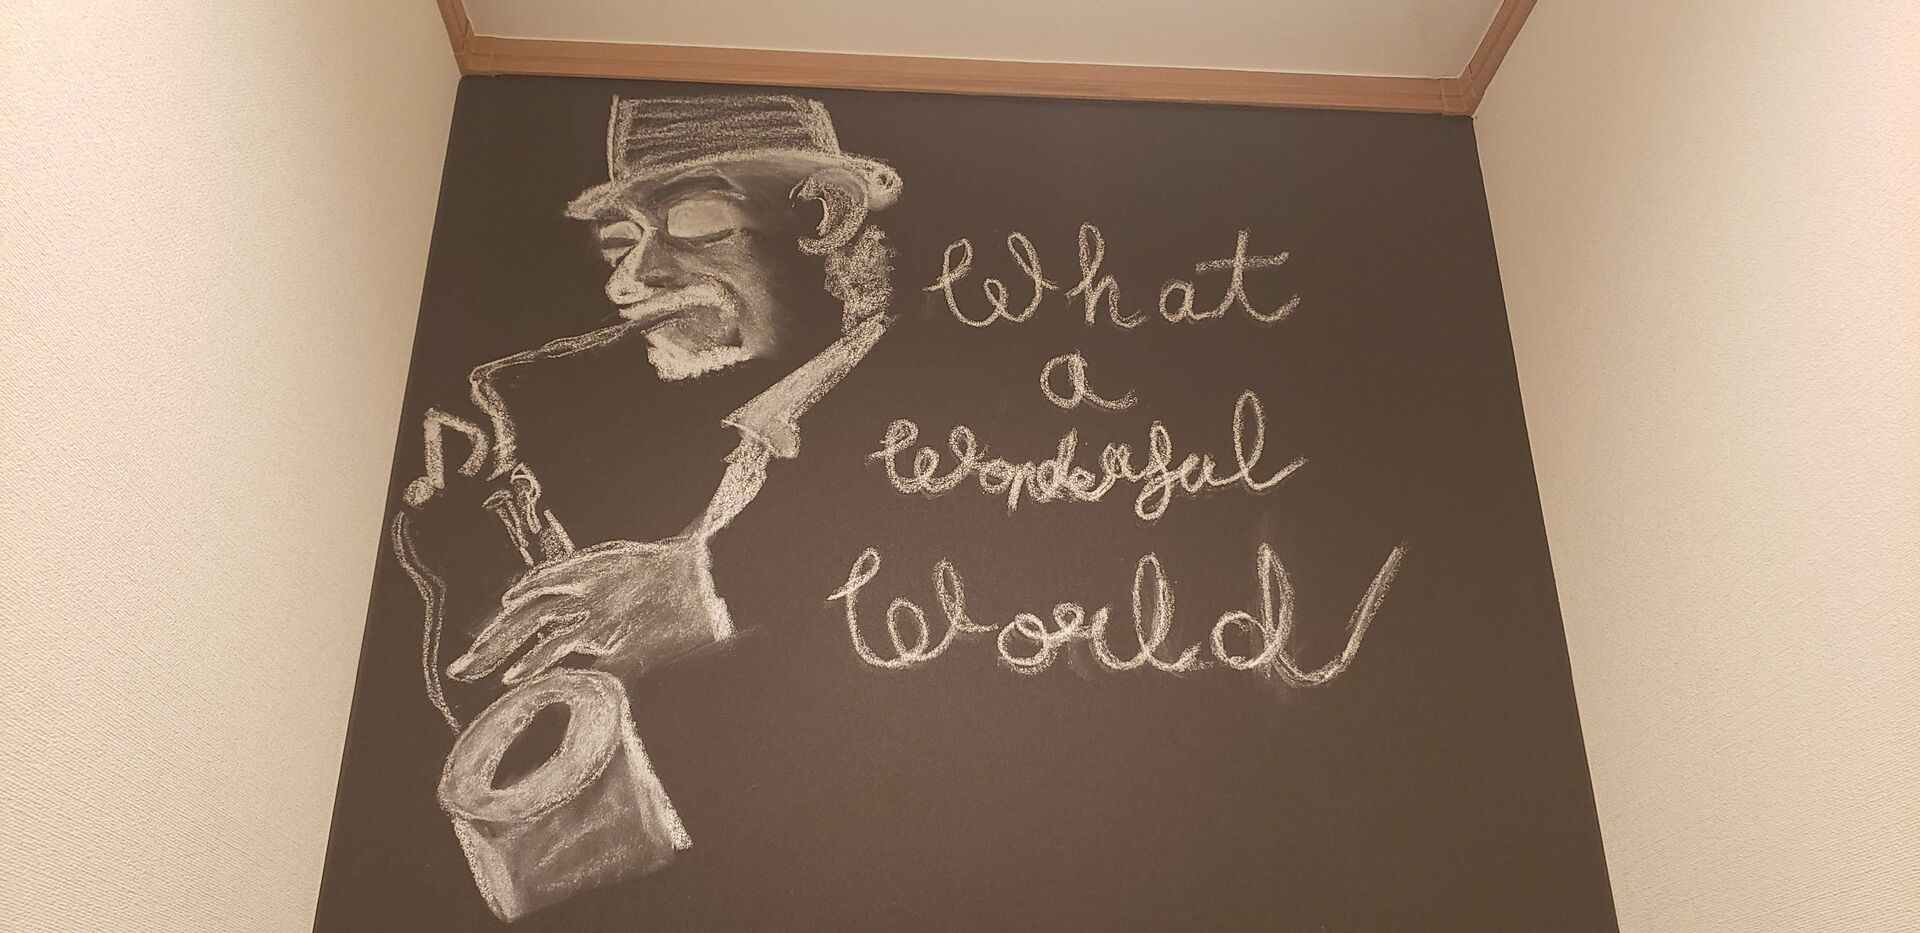 What
a
Wonderful
World